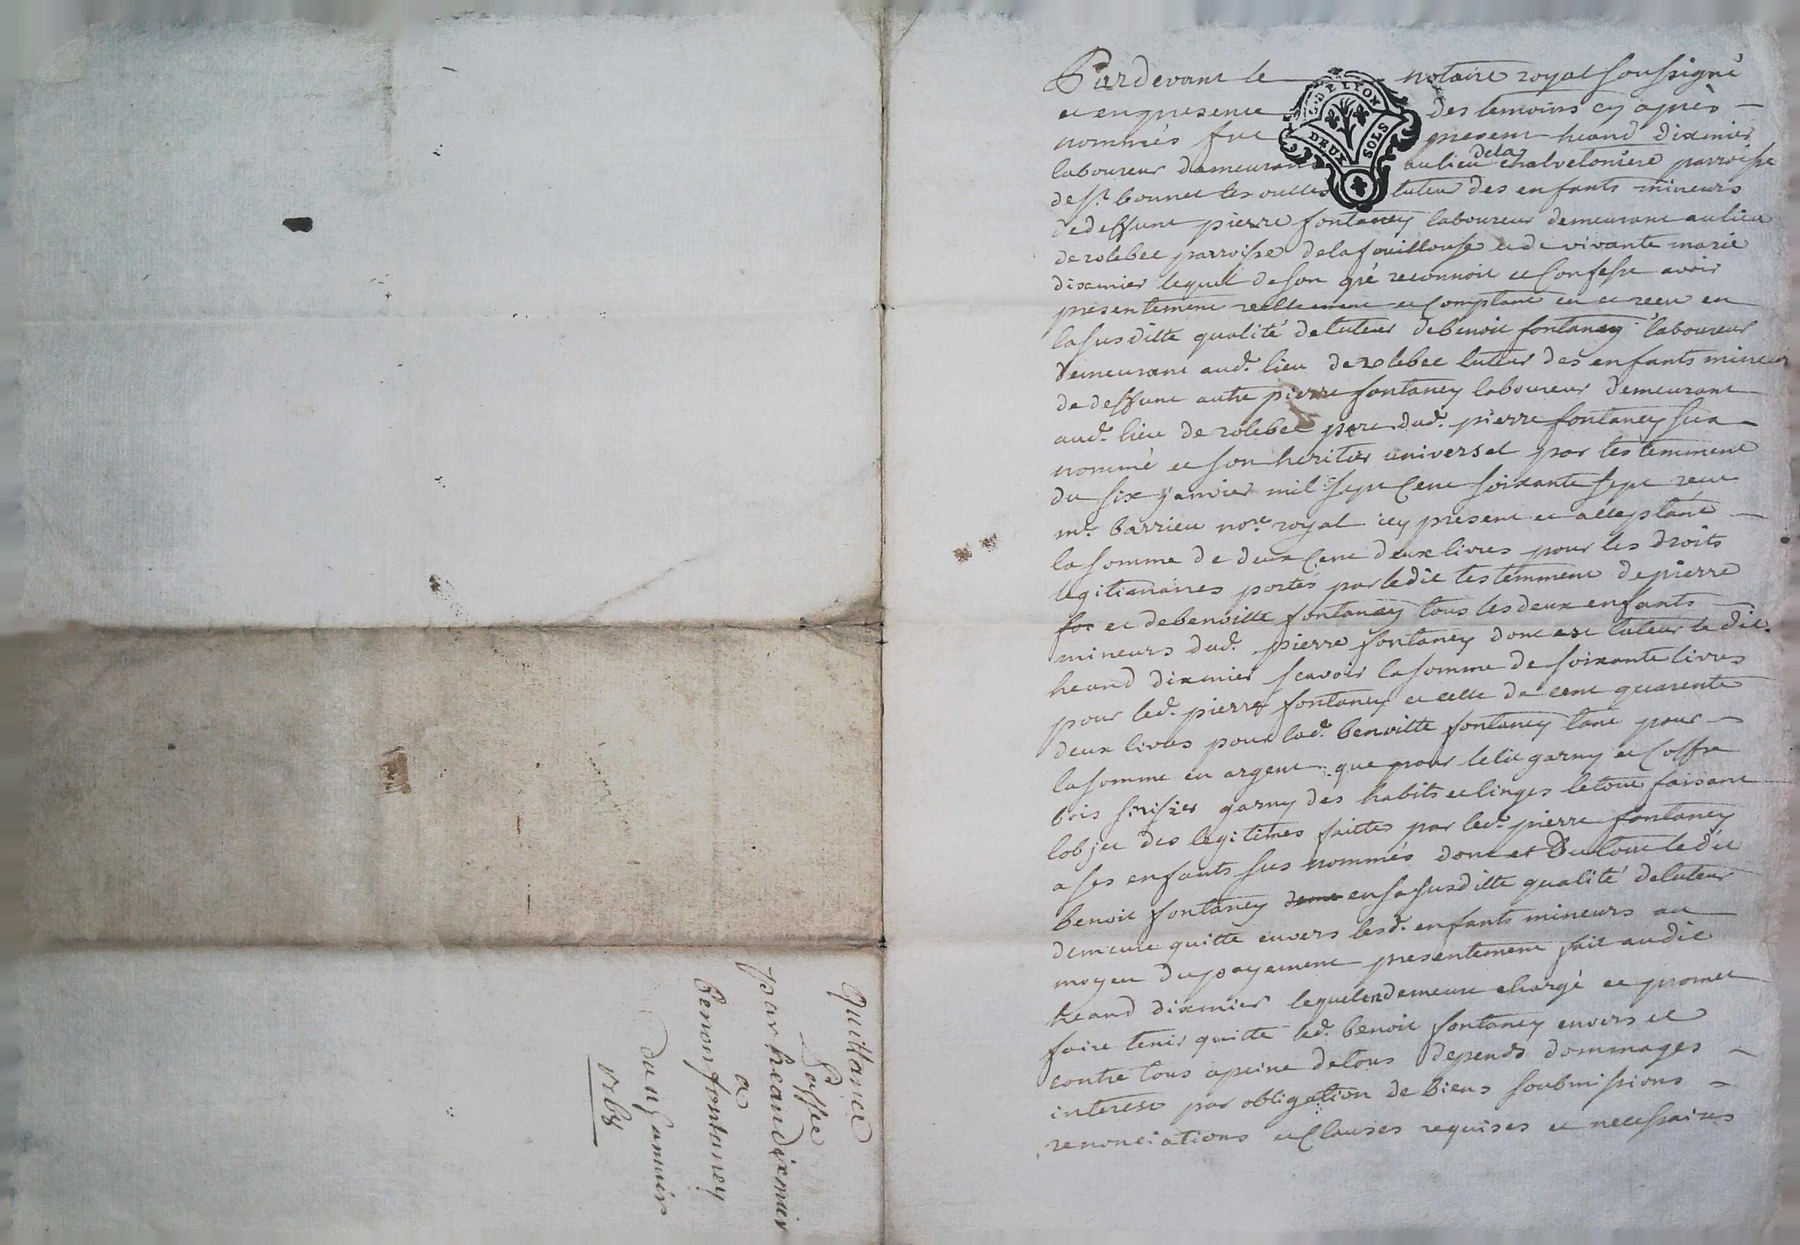 Pardevant le notaire royal soussigné
G. DE LYON
DEUX SOLS
et en presence des temoins cy après
nommés fut present heand diximier
laboureur demeurant au lieu dela chalvetoniere parroisse
de st. bonnet les oulles tuteur des enfants mineurs
de deffunt pierre fontaney laboureur demeurant au lieu
de rolebec parroisse de la fouillouse et de vivante marie
diximier lequel de son gré reconnoit et Confesse avoir
presentement reellement et Comptant eu et receu en
la susditte qualité de tuteur de benoit fontaney laboureur
demeurant aud. lieu de rolebec tuteur des enfants mineurs
de deffunt autre pierre fontaney laboureur demeurant
aud. lieu de rolebec pere dud. pierre fontaney sus
nommé et son heritier universel par testemment
du six janvier mil sept Cent soixante sept receu
me. barrieu nore. royal icy present et acceptant
la somme de deux Cent deux livres pour les droits
legitimaires portés par ledit testemment de pierre
fos et de benoitte fontaney tous les deux enfants
mineurs dud. pierre fontaney dont est tuteur le dit
heand diximier scavoir la somme de soixante livres
pour led. pierre fontaney et celle de cent quarente
deux livres pour lad. benoitte fontaney tant pour
la somme en argent que pour le lit garny et Coffre
bois serisier garny des habits et linges le tout faisant
lobjet des legitimes faittes par led. pierre fontaney
a ses enfants sus nommés dont et du tout le dit
benoit fontaney en sa susditte qualité de tuteur
demeure quitte envers lesd. enfants mineurs au
moyen du payement presentement fait audit
heand diximier lequel en demeure chargé et promet
faire tenir quitte led. benoit fontaney envers et
contre tous a peine de tous depends dommages
interest par obligation de biens soubmissions
renonciations et Clauses requises et necessaires
Quittance
passée
par heand diximier
a
benoit fontaney
du 11 janvier
1768